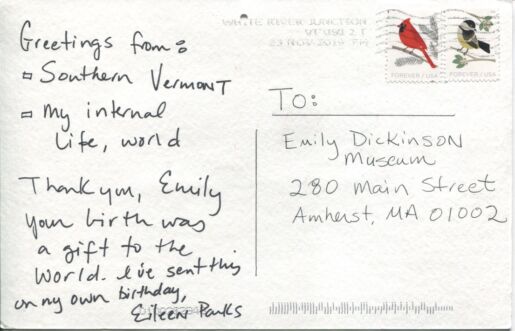 Greetings from:
▫ Southern Vermont
▫ My internal
Life, world
Thank you, Emily
your birth was
a gift to the
World. I've sent this
on my own birthday,
Eileen Parks
WHITE RIVER JUNCTION
VT 050 2 T
23 NOV 2019 PM
FOREVER / USA
FOREVER / USA
TO:
Emily Dickinson
Museum
280 Main Street
Amherst, MA 01002